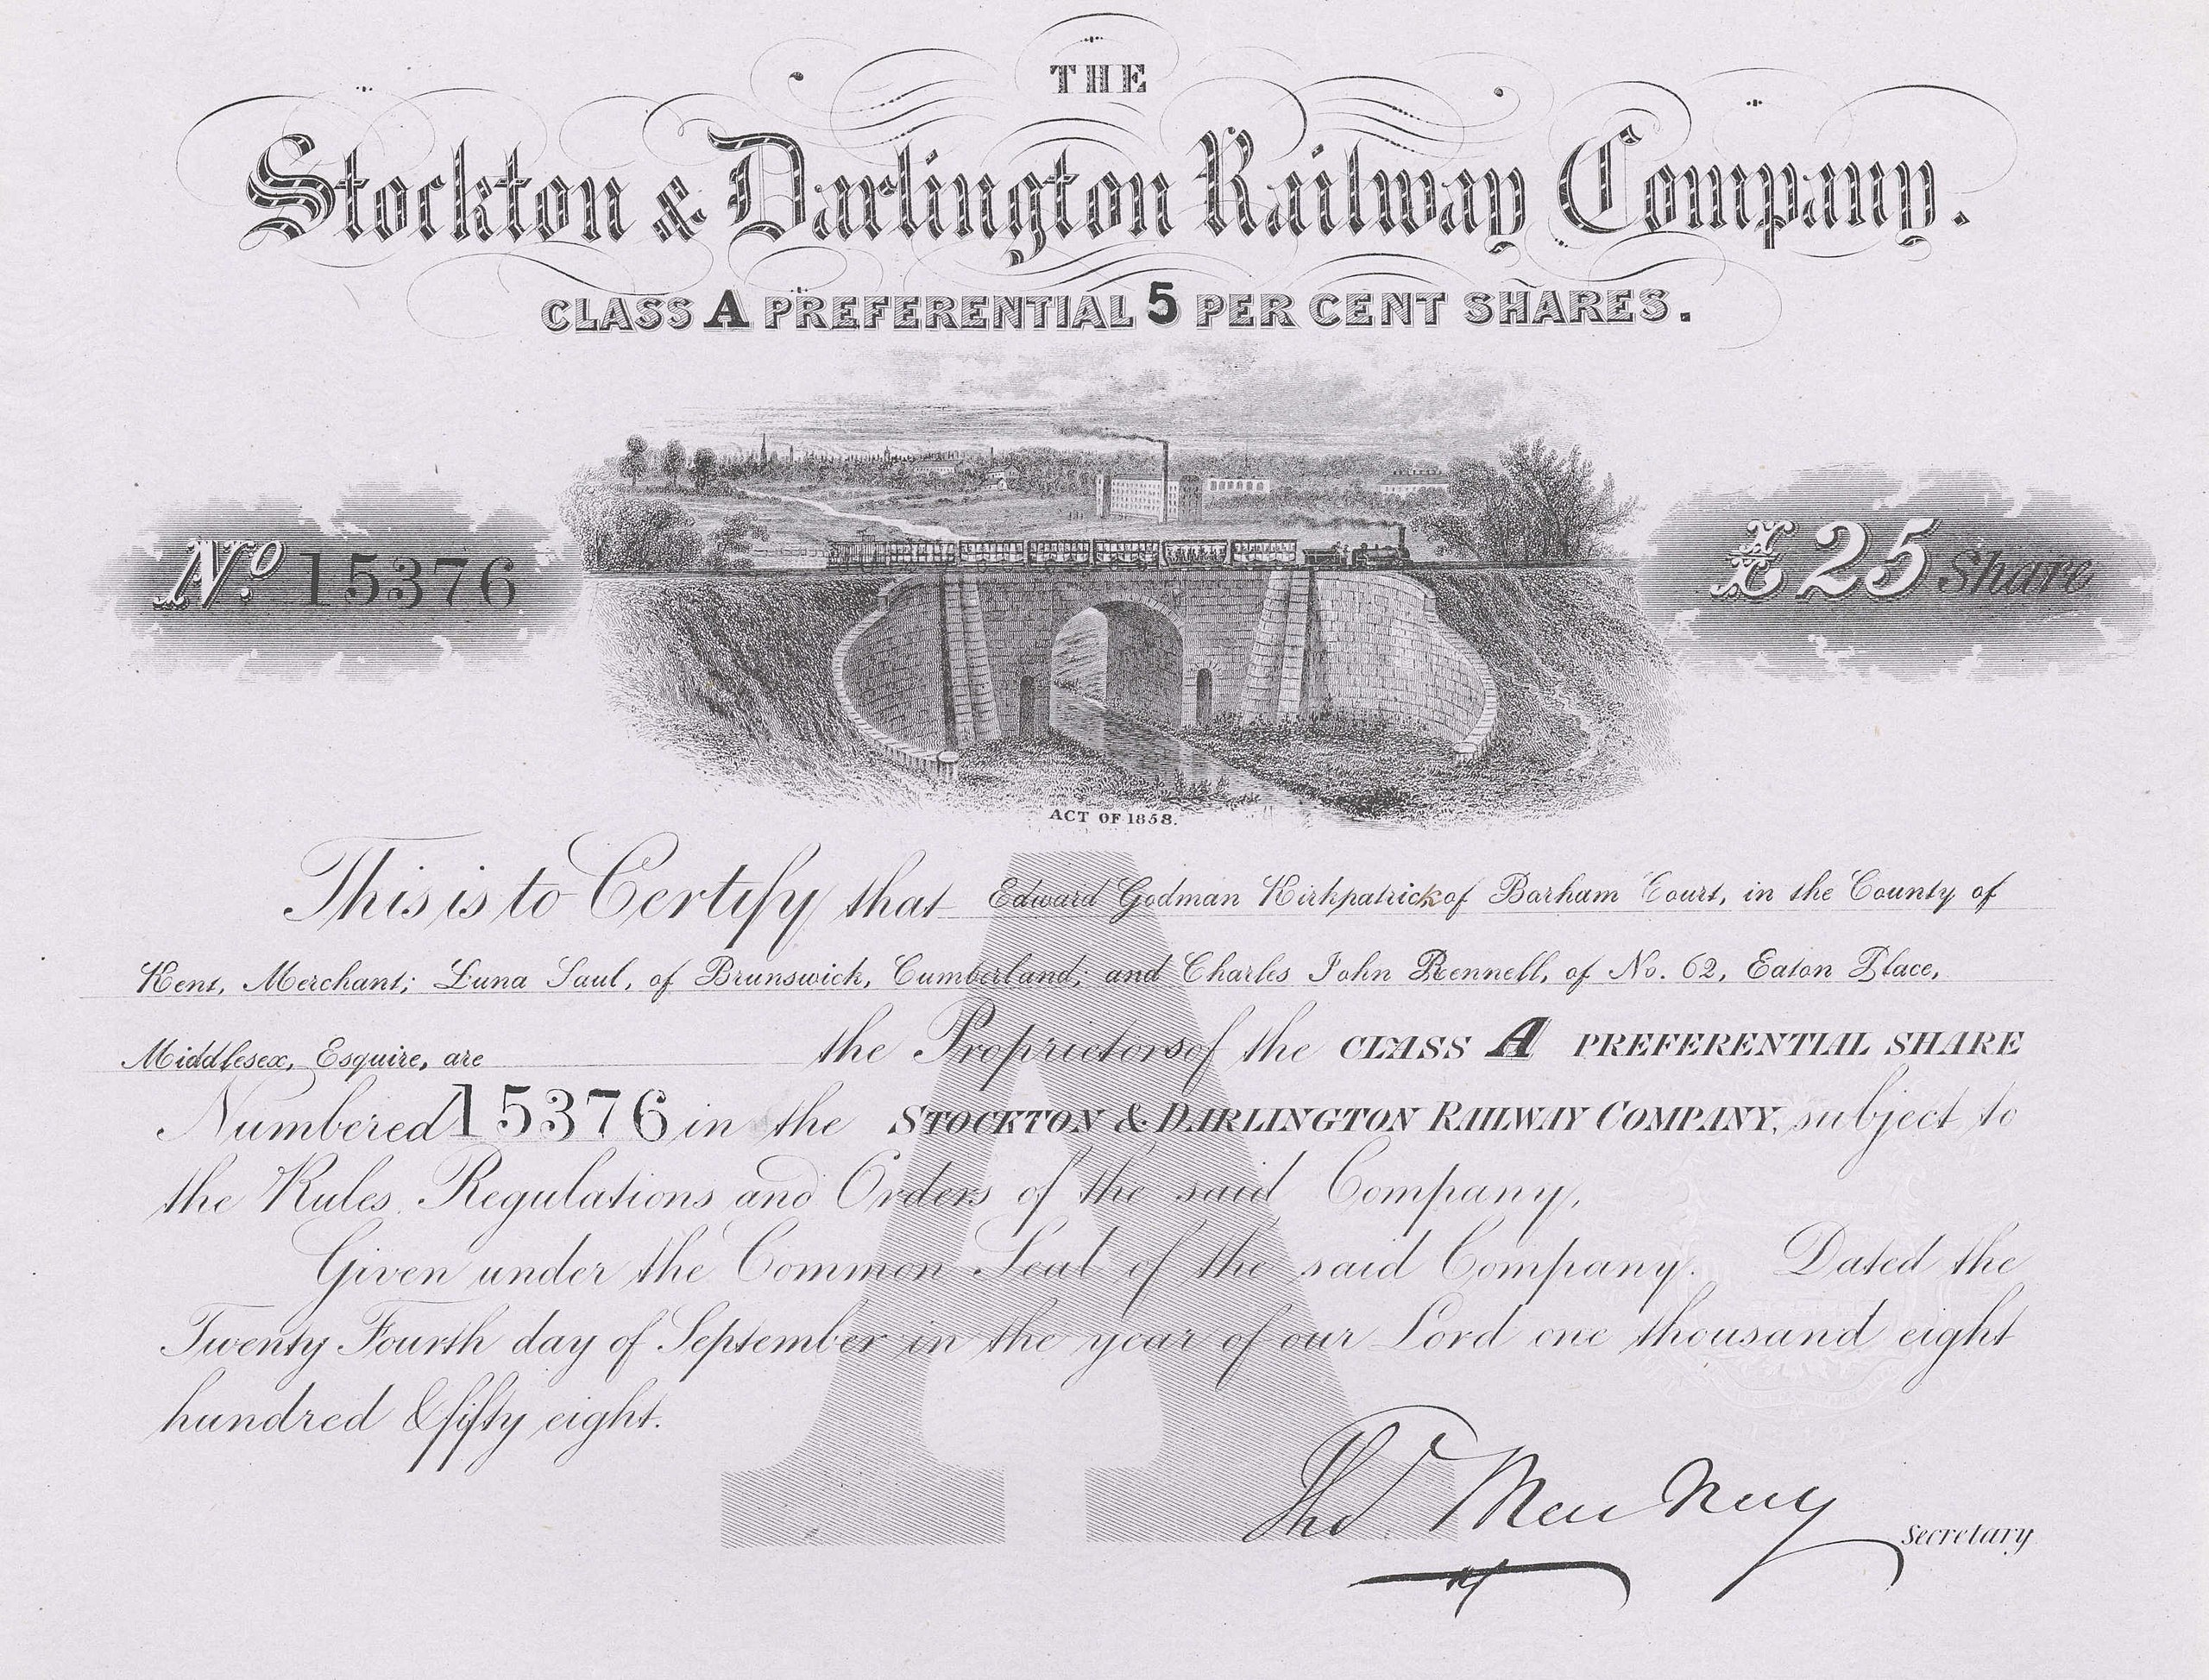 THE
Stockton & Darlington Railway Company.
CLASS A PREFERENTIAL 5 PER CENT SHARES.
No. 15376
£25 Share
ACT OF 1858.
This is to Certify that Edward Godman Kirkpatrick of Barham Court, in the County of
Kent, Merchant; Luna Saul, of Brunswick, Cumberland; and Charles John Rennell, of No. 62, Eaton Place,
Middlesex, Esquire, are the Proprietors of the CLASS A PREFERENTIAL SHARE
Numbered 15376 in the STOCKTON & DARLINGTON RAILWAY COMPANY, subject to
the Rules, Regulations and Orders of the said Company,
Given under the Common Seal of the said Company. Dated the
Twenty Fourth day of September in the year of our Lord one thousand eight
hundred & fifty eight.
A
Thos MacNay
Secretary